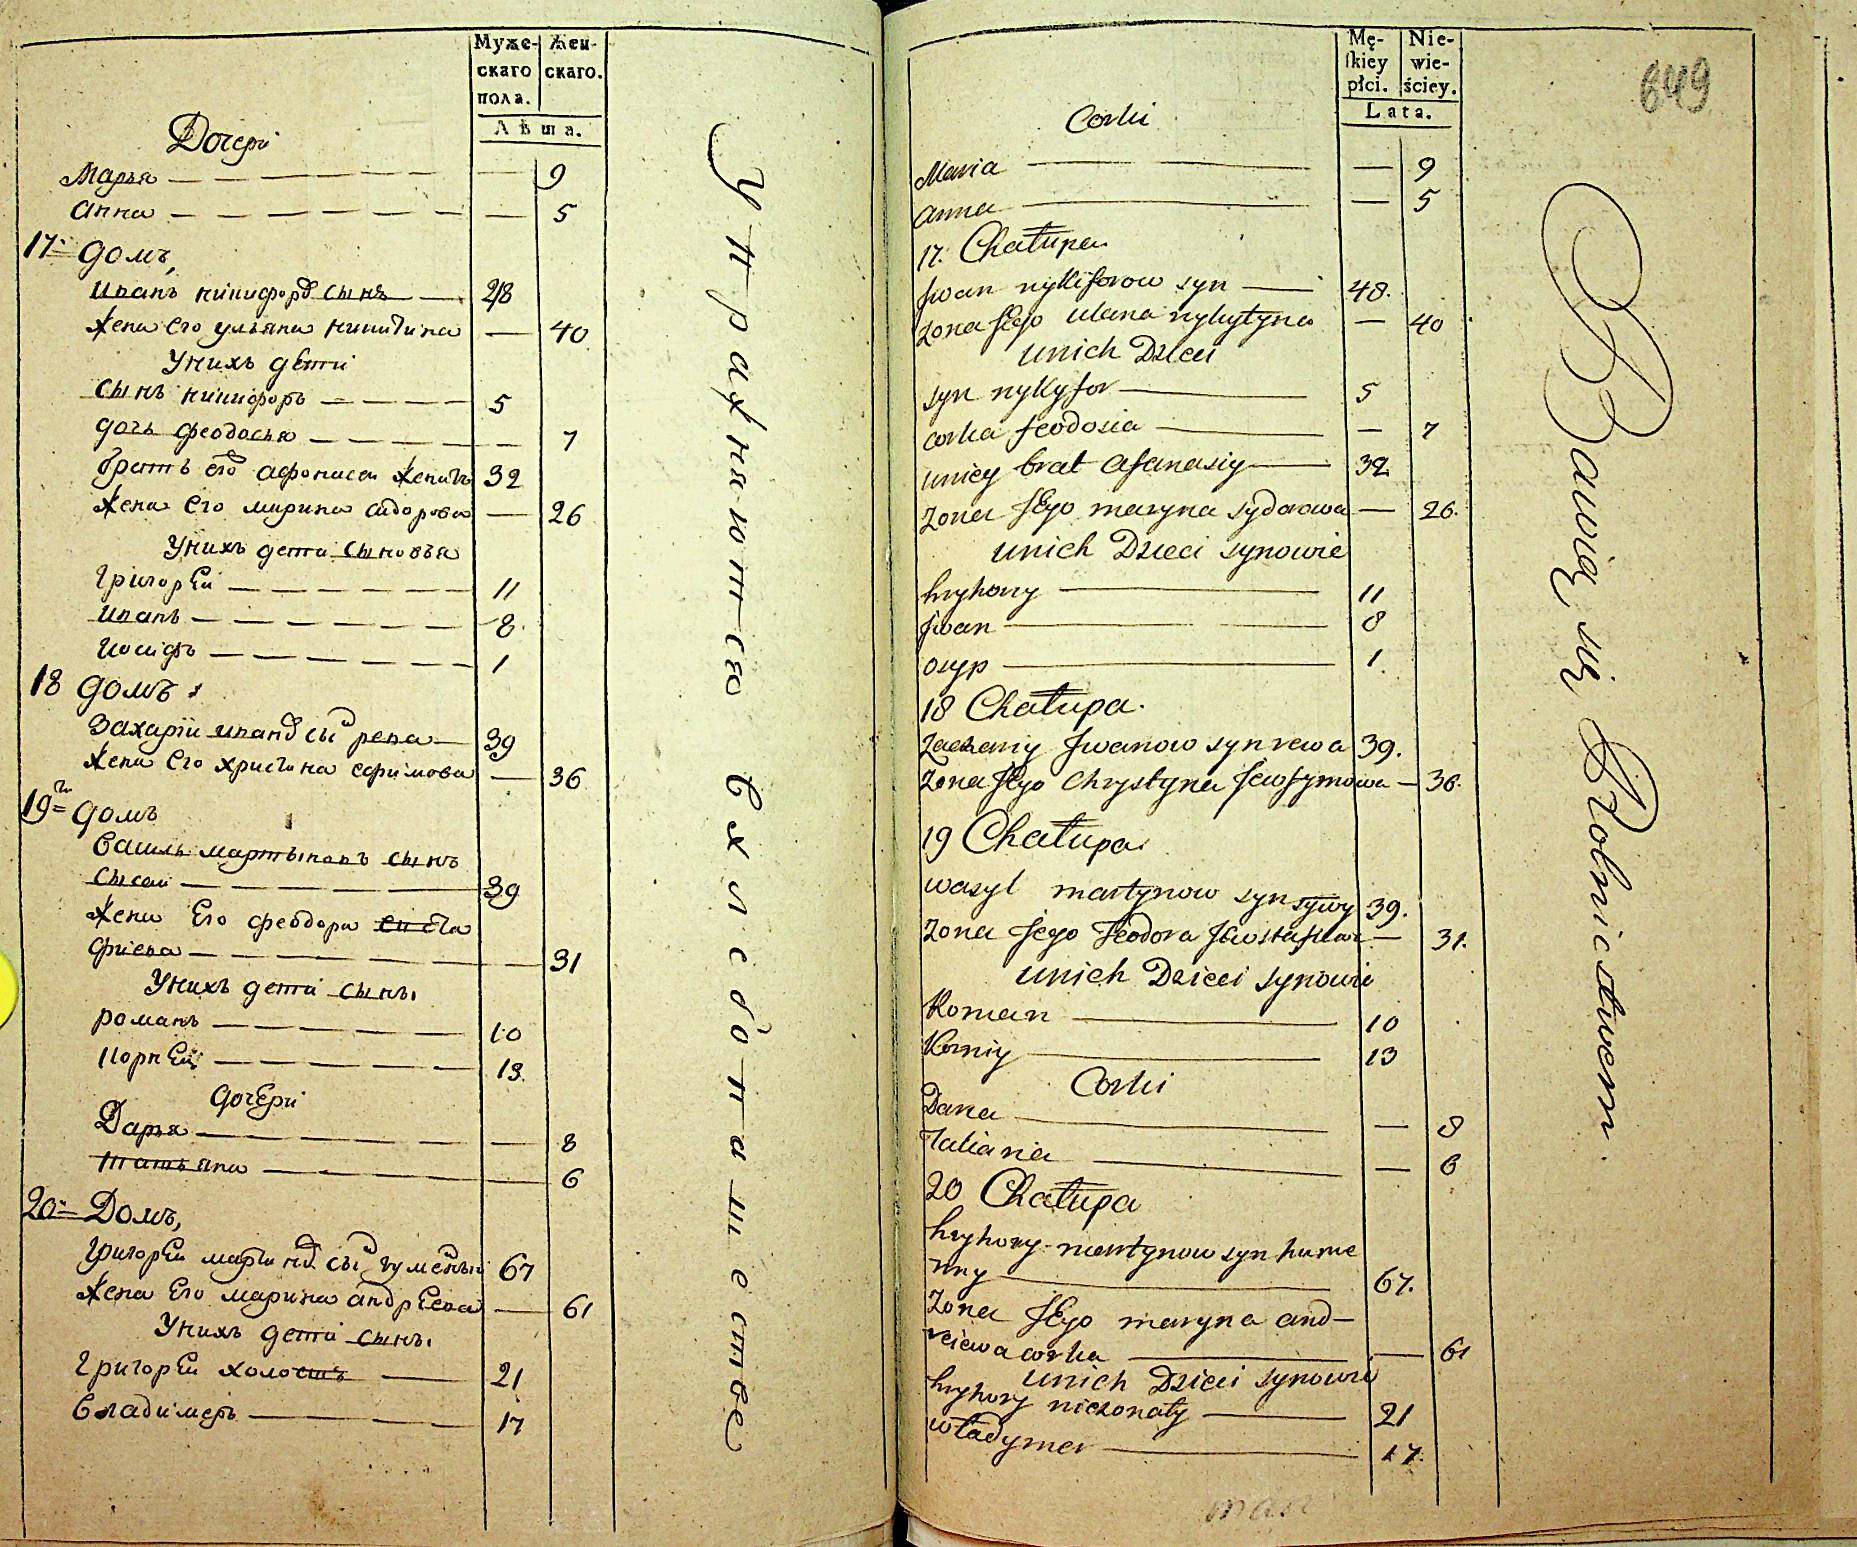 Муже-
скаго
пола.
Жен-
скаго.
Лѣта.
Дочери
Марья — 9
анна — 5
17й домъ,
иванъ никифоровъ сынъ — 48
жена его ульяна никитина — 40
У нихъ дети
сынъ никифоръ — 5
дочь феодосья — 7
братъ его афонасеи женатъ 32
жена его марина сидорова — 26
У нихъ дети сыновья
григорей — 11
иванъ — 8
иосифъ — 1
18 домъ
Захарiи иванов сы рева — 39
жена его христина ефимова — 36
19й домъ
василь мартыновъ сынъ
сысаи — 39
жена его феодора евста
фиева — 31
У нихъ дети сынъ.
романъ — 10
корней — 13
дочери
Дарья — 8
татьяна — 6
20й Домъ,
григореи мартинов сы гуменныи 67
жена его марина андреева — 61
У нихъ дети сынъ.
григореи холостъ — 21
владимеръ — 17
Упражняются в хлебопашестве
Mę-
skiey
płci.
Nie-
wie-
ściey.
Lata.
649
Corki
Maria — 9
anna — 5
17. Chałupa
Jwan nykiforow syn — 48.
żona Jego ulana nykytyna — 40
unich Dzieci
syn nykyfor — 5
corka feodosia — 7
uniey brat afanasiy — 32
żona JEgo maryna sydorowa — 26.
unich Dzieci synowie
hryhory — 11
Jwan — 8
osyp — 1
18 Chałupa.
Zachariy Jwanow syn rewa 39.
żona JEgo Chrystyna Jewfymowa — 36.
19 Chałupa
wasyl martynow syn sysoy 39.
żona Jego Feodora Jewstafiewa — 31.
unich Dzieci synowie
Roman — 10
Korniy — 13
Corki
Daria — 8
Tatiana — 6
20 Chałupa
hryhory martynow syn hume
nny — 67.
żona JEgo maryna and-
reiewa corka — 61
unich Dzieci synowie
hryhory nieżonaty — 21
władymer — 17.
Bawią się Rolnictwem.